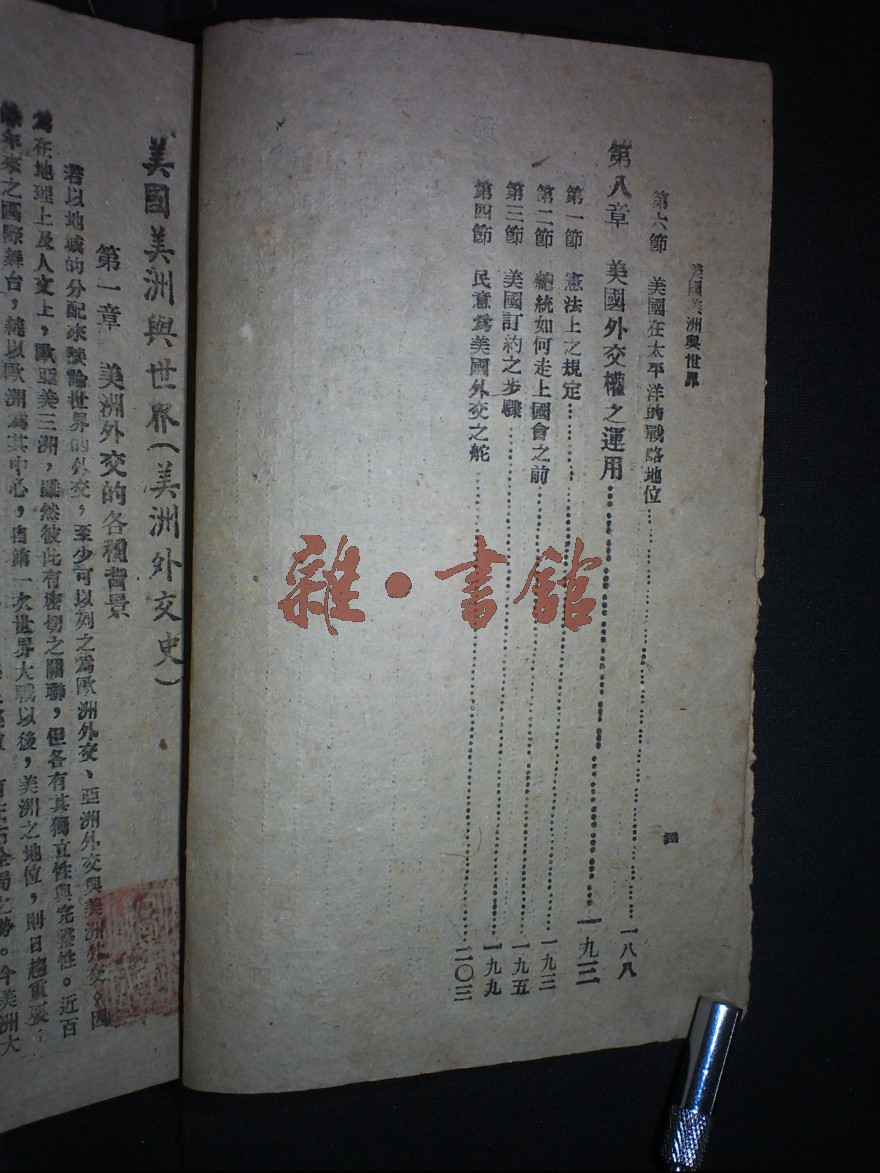 美國美洲與世界
第六節 美國在太平洋的戰略地位……一八八
第八章 美國外交權之運用……一九三
第一節 憲法上之規定……一九三
第二節 總統如何走上國會之前……一九五
第三節 美國訂約之步驟……一九九
第四節 民意為美國外交之舵……二〇三
四
雜·書館
美國美洲與世界（美洲外交史）
第一章 美洲外交的各種背景
若以地域的分配來談論世界的外交，至少可以列之為歐洲外交、亞洲外交與美洲外交。因
為在地理上及人文上，歐亞美三洲，雖然彼此有密切之關聯，但各有其獨立性與完整性。近百
餘年來之國際舞台，純以歐洲為其中心，自第一次世界大戰以後，美洲之地位，則日趨重要，
全局之勢。今美洲大